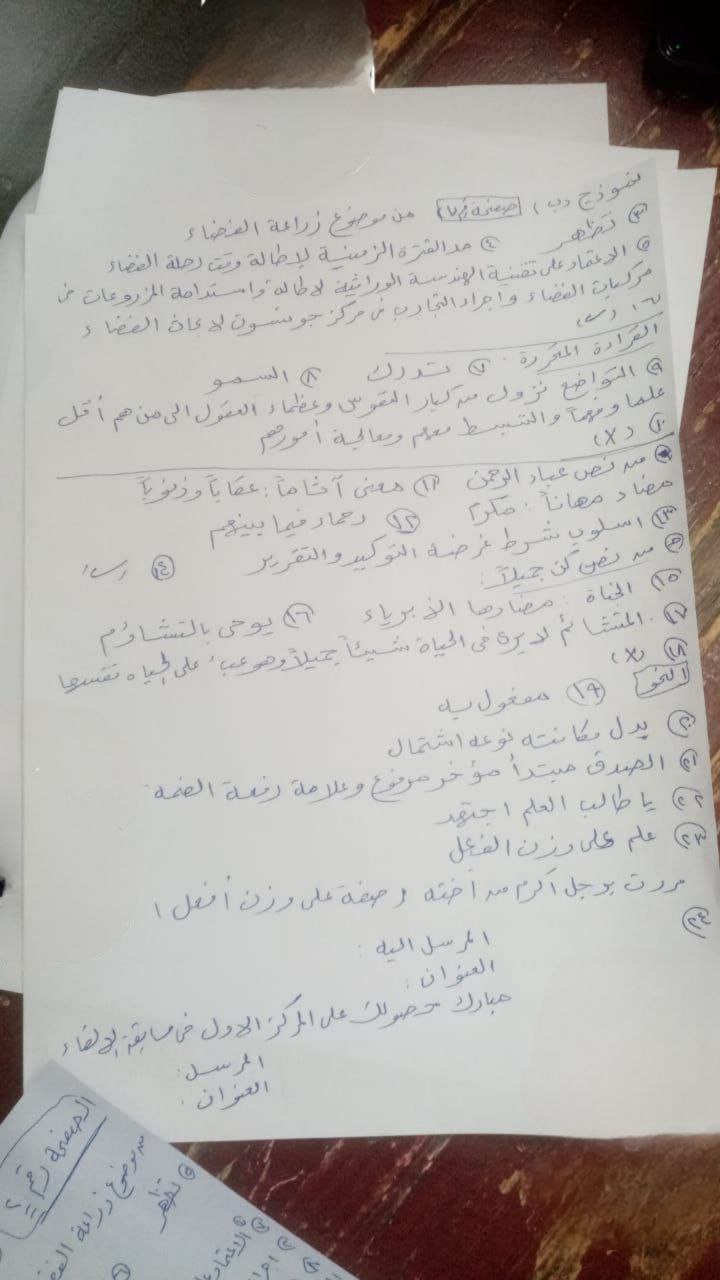 نموذج (ب) صفحة رقم (٧) من موضوع زراعة الفضاء
(٣) تظهر (٤) مد الفترة الزمنية لإطالة وقت رحلة الفضاء
(٥) الاعتماد على تقنية الهندسة الوراثية لاطالة واستدامة المزروعات فى
مركبات الفضاء واجراء التجارب فى مركز جونسون لابحاث الفضاء
(٦)
القراءة المتحررة: (٧) تدرك (٨) السمو
(٩) التواضع نزول من كبار النفوس وعظماء العقول الى من هم أقل
علما وفهماً والتبسط معهم ومعالجة أمورهم
(١٠) (X)
من نص عباد الرحمن (١١) معنى آثاماً: عقاباً وذنوباً
مضاد مهاناً: مكرم (١٢) رحماء فيما بينهم
(١٣) اسلوب شرط غرضه التوكيد والتقرير (١٤)
من نص كن جميلاً:
(١٥) الجناة: مضادها الابرياء (١٦) يوحى بالتشاؤم
(١٧) المتشائم لا يرى فى الحياة شيئاً جميلاً وهو عبء على الحياه نفسها
(١٨) (X)
النحو (١٩) مفعول به
(٢٠) بدل مكانته نوعه اشتمال
(٢١) الصدق مبتدأ مؤخر مرفوع وعلامة رفعة الضمة
(٢٢) يا طالب العلم اجتهد
(٢٣) علم على وزن الفعل
مررت برجل اكرم من اخته (صفة على وزن أفعل)
(٢٤)
المرسل اليه:
العنوان:
مبارك حصولك على المركز الاول فى مسابقة الالقاء
المرسل:
العنوان:
الصفحة رقم ٢
من موضوع زراعة
(٣) تظهر